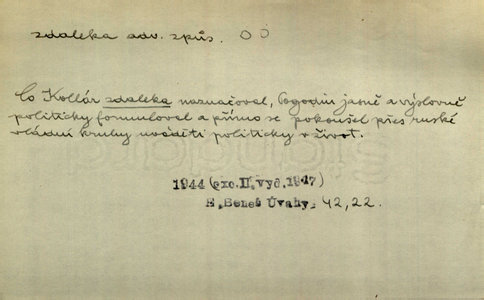 zdaleka adv. způs. OO
Co Kollár zdaleka naznačoval, Pogodin jasně a výslovně
politicky formuloval a přímo se pokoušel přes ruské
vládní kruhy uváděti politicky v život.
1944 (exc.II.vyd.1947)
E.Beneš Úvahy, 42,22.